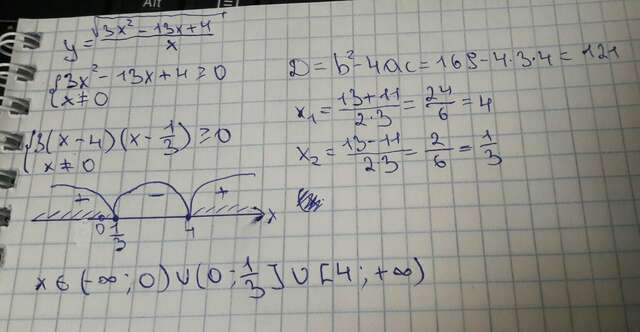 y = √(3x² - 13x + 4) / x
{ 3x² - 13x + 4 ≥ 0
{ x ≠ 0
D = b² - 4ac = 169 - 4·3·4 = 121
x₁ = (13 + 11) / (2·3) = 24/6 = 4
x₂ = (13 - 11) / (2·3) = 2/6 = 1/3
{ 3(x - 4)(x - 1/3) ≥ 0
{ x ≠ 0
+ - +
0 1/3 4 x
x ∈ (-∞; 0) ∪ (0; 1/3] ∪ [4; +∞)
Alt